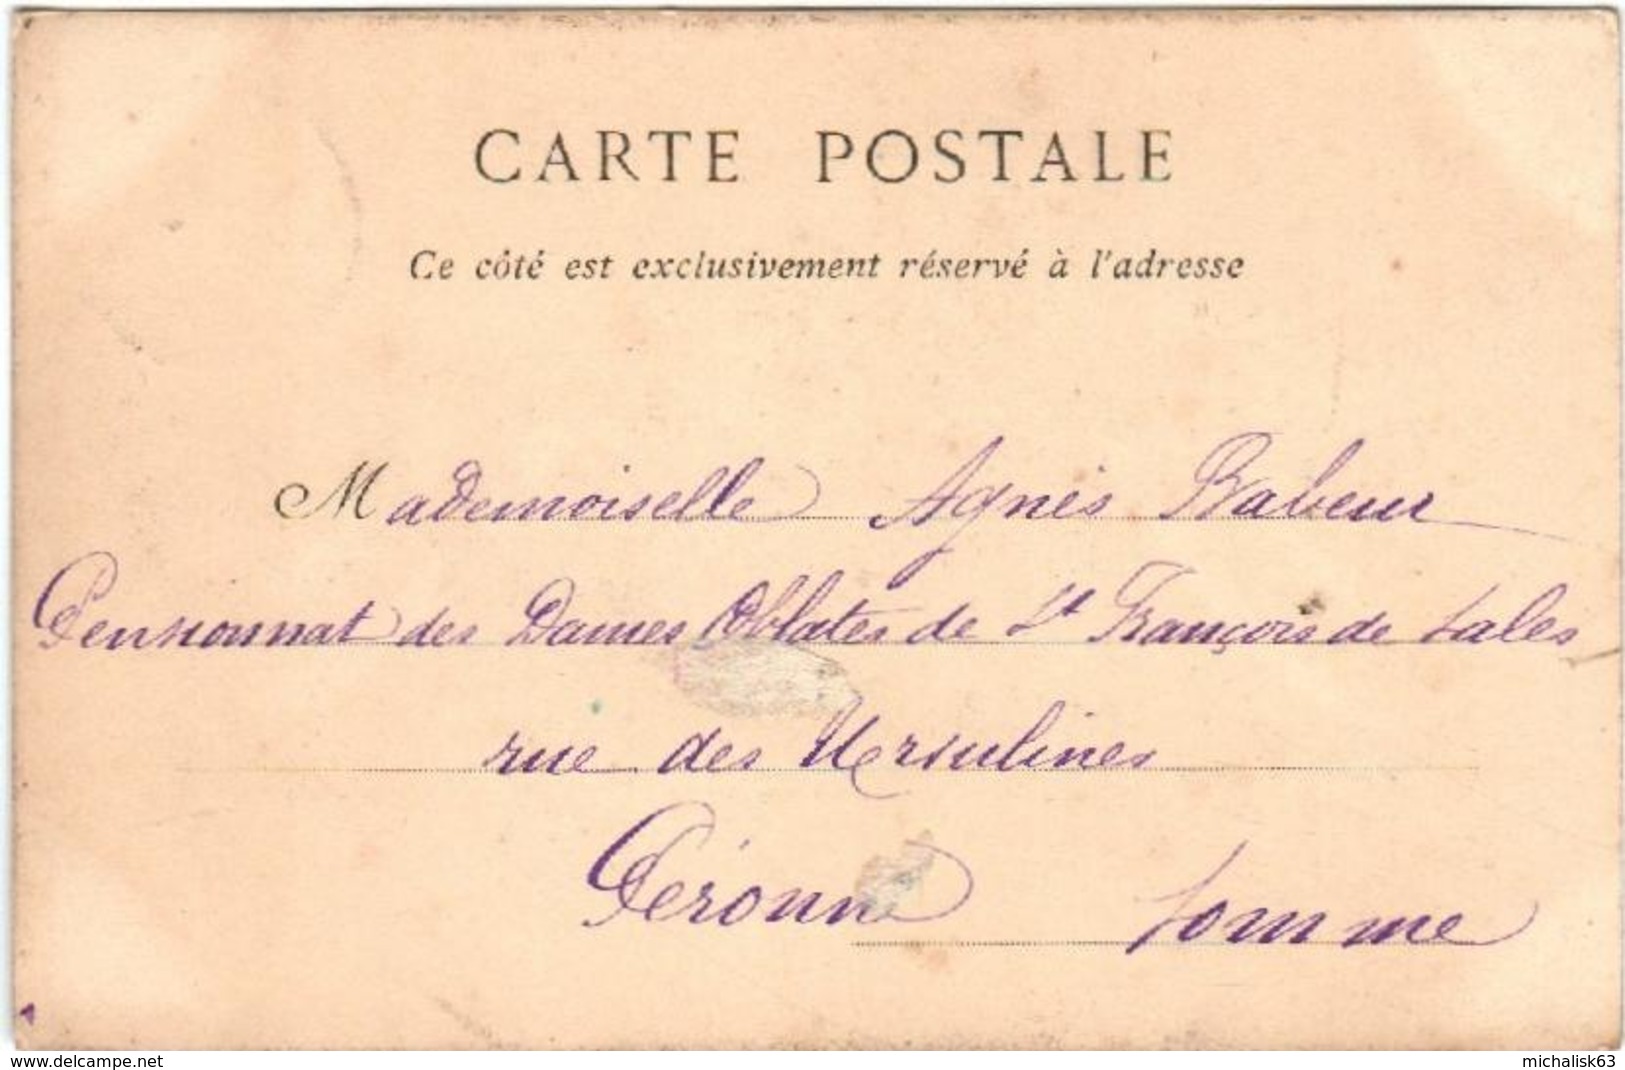 CARTE POSTALE
Ce côté est exclusivement réservé à l'adresse
Mademoiselle Agnès Rabeur
Pensionnat des Dames Oblates de St François de Sales
rue des Ursulines
Péronne Somme
www.delcampe.net michalisk63